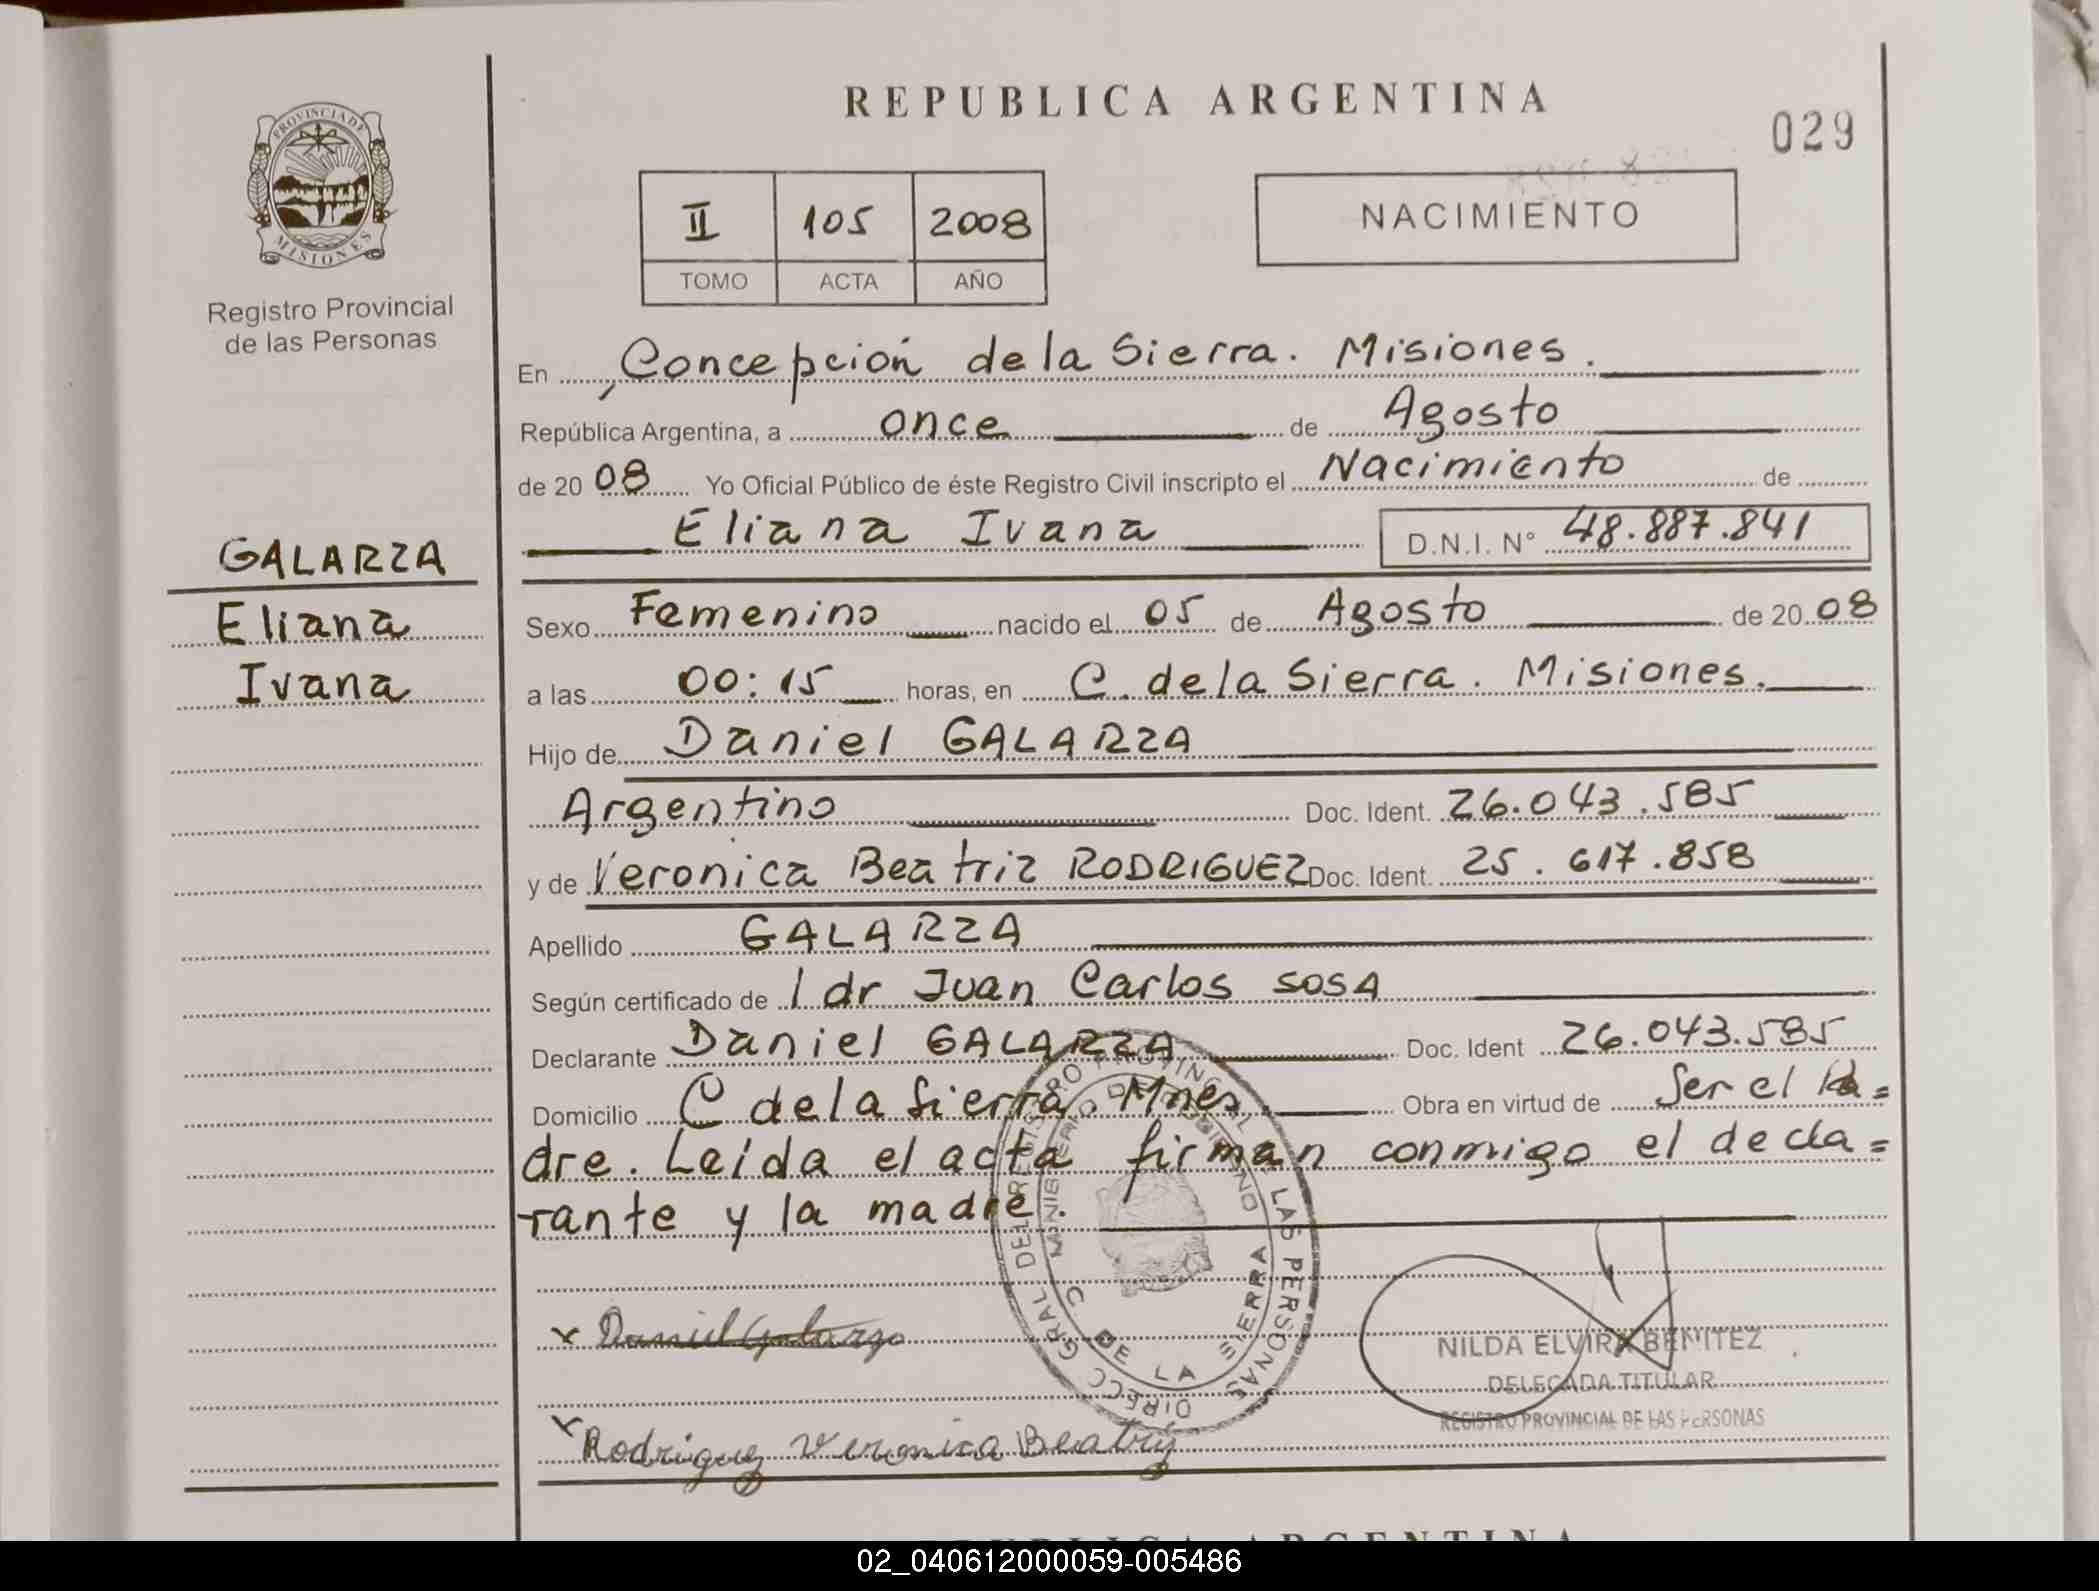 REPUBLICA ARGENTINA
029
PROVINCIA DE
MISIONES
Registro Provincial
de las Personas
II 105 2008
TOMO ACTA AÑO
NACIMIENTO
En Concepción de la Sierra. Misiones.
República Argentina, a once de Agosto
de 2008 Yo Oficial Público de éste Registro Civil inscripto el Nacimiento de
Eliana Ivana D.N.I. N° 48.887.841
GALARZA
Eliana
Ivana
Sexo Femenino nacido el 05 de Agosto de 2008
a las 00:15 horas, en C. de la Sierra. Misiones.
Hijo de Daniel GALARZA
Argentino Doc. Ident. 26.043.585
y de Veronica Beatriz RODRIGUEZ Doc. Ident. 25.617.858
Apellido GALARZA
Según certificado de 1 dr Juan Carlos SOSA
Declarante Daniel GALARZA Doc. Ident 26.043.585
Domicilio C de la Sierra. Mnes. Obra en virtud de Ser el Pa=
dre. Leída el acta firman conmigo el decla=
rante y la madre.
DIRECC GRAL DEL REGISTRO PROVINCIAL DE LAS PERSONAS
MINISTERIO DE GOBIERNO
C DE LA SIERRA
x Daniel Galarza
NILDA ELVIRA BENITEZ
DELEGADA TITULAR
REGISTRO PROVINCIAL DE LAS PERSONAS
x Rodriguez Veronica Beatriz
REPUBLICA ARGENTINA
02_040612000059-005486